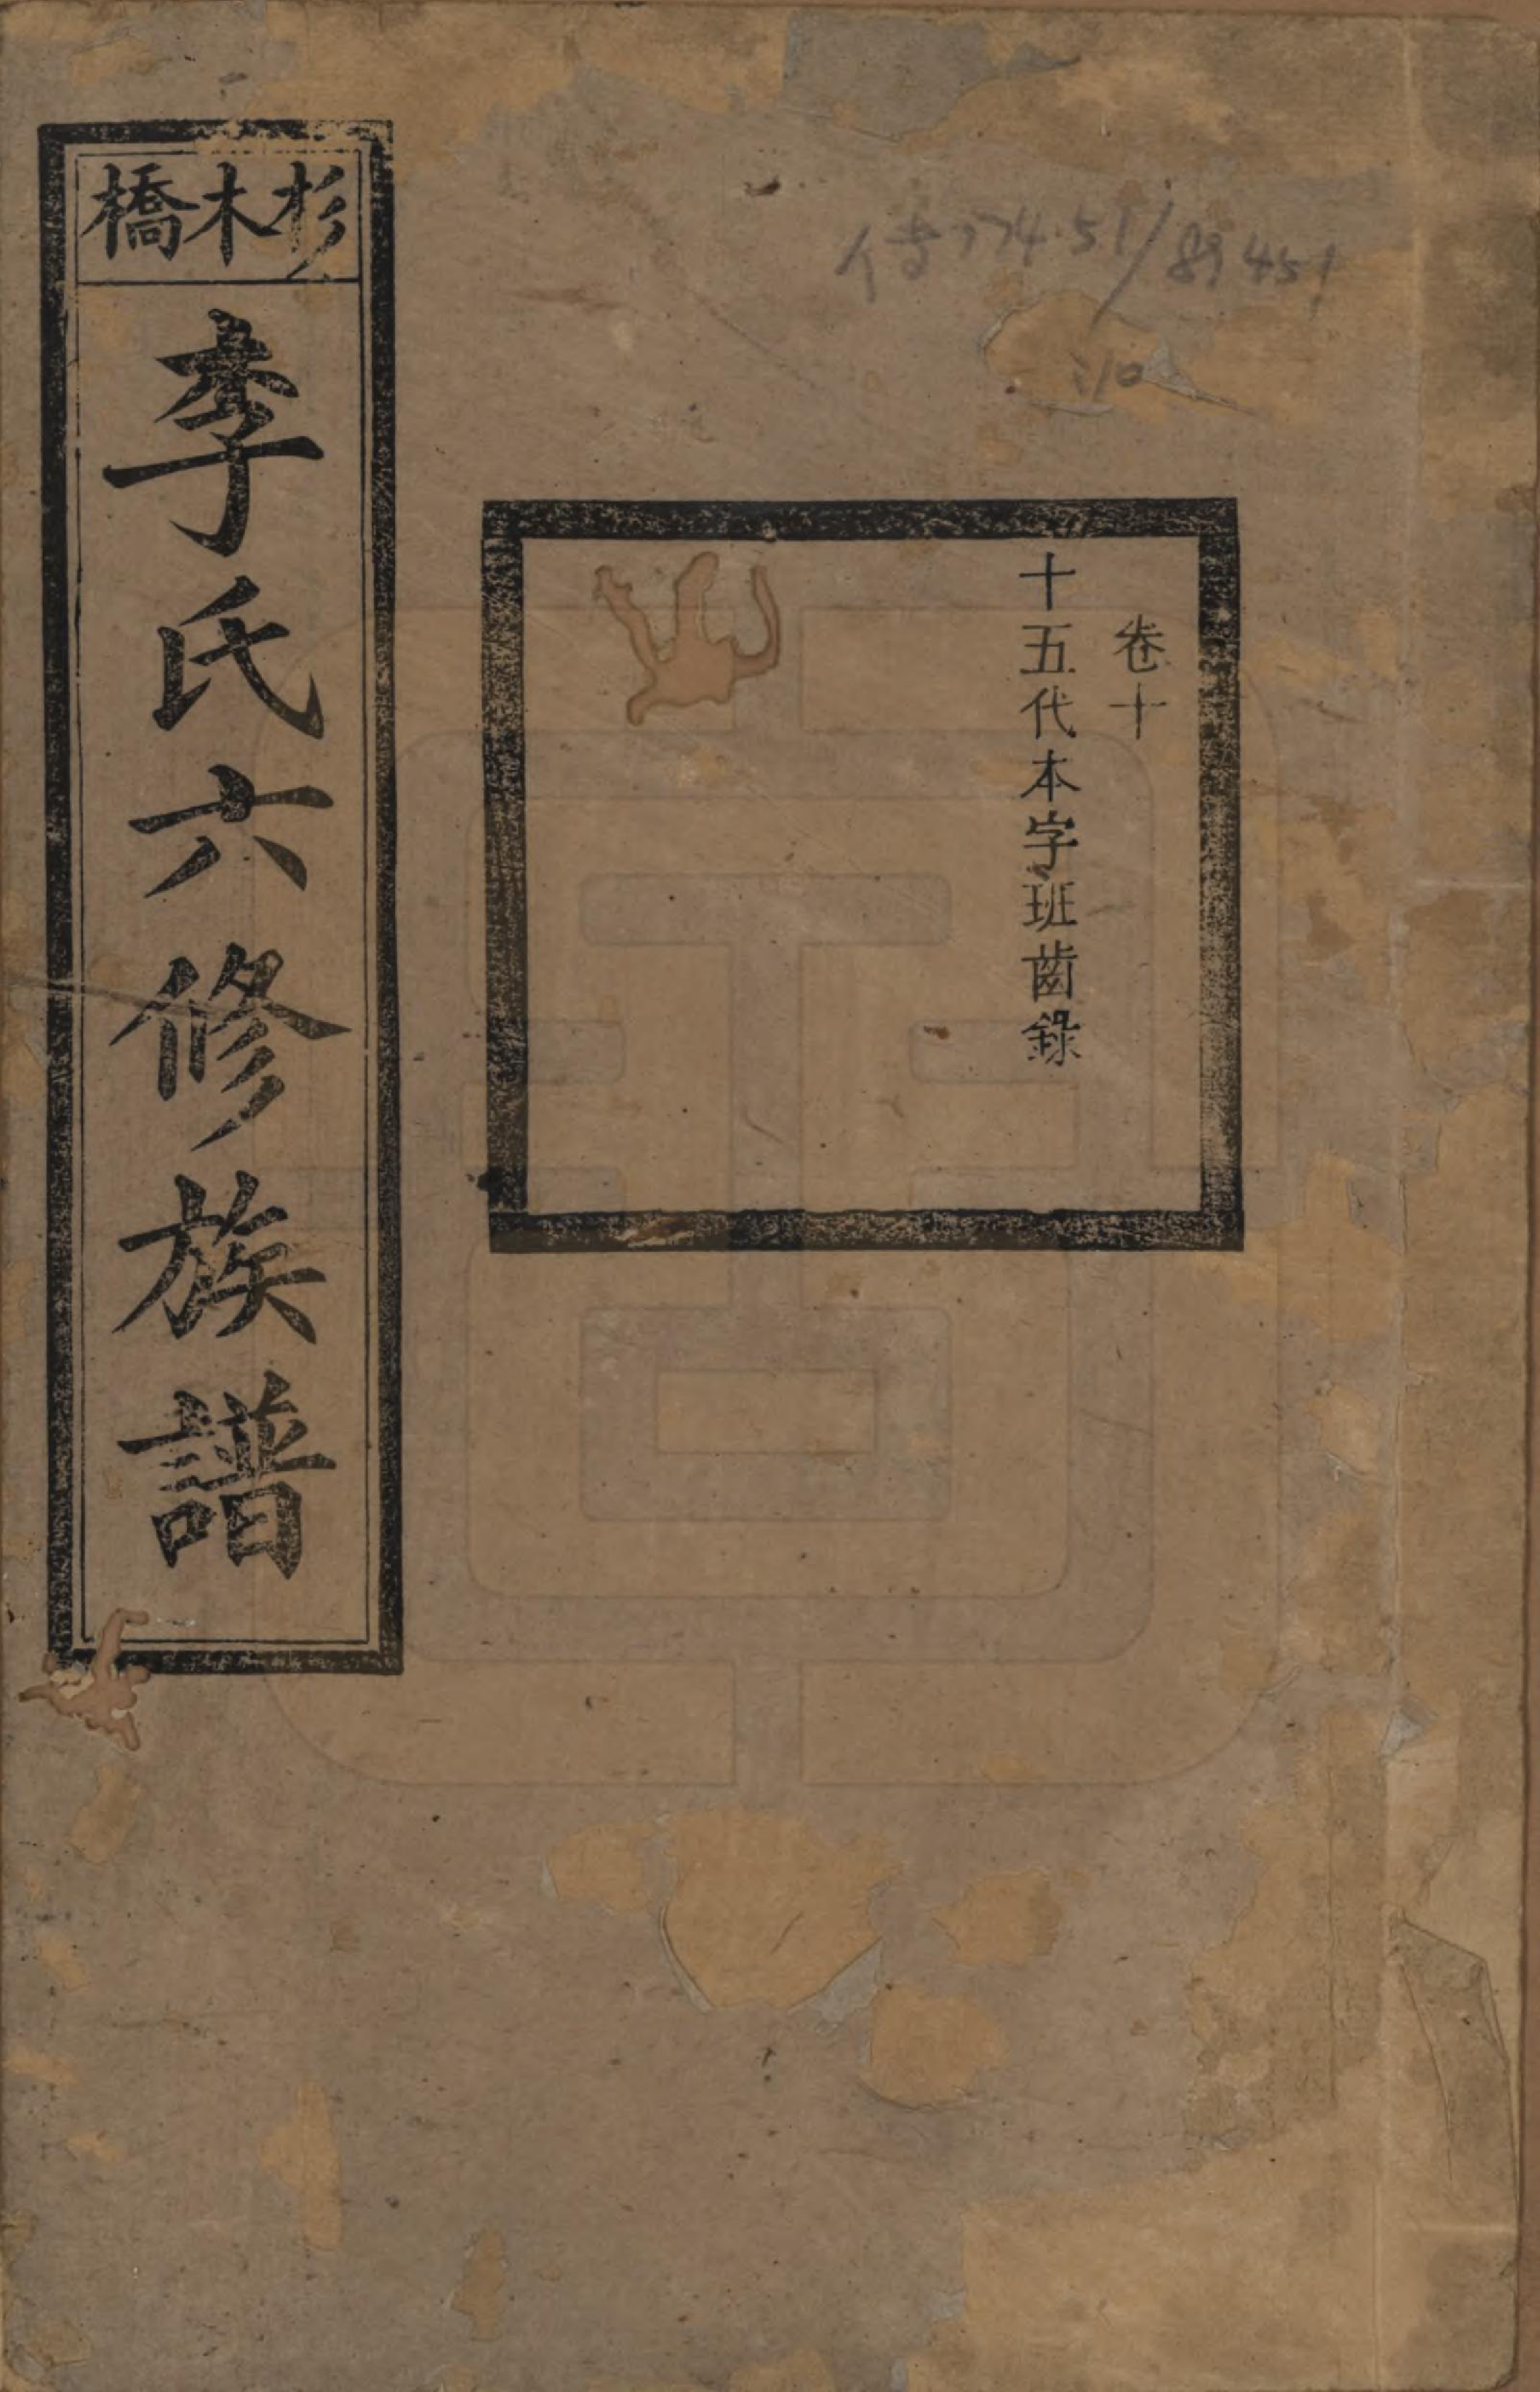 傳774.51/89451
:10
杉木橋
李氏六修族譜
卷十
十五代本字班齒錄